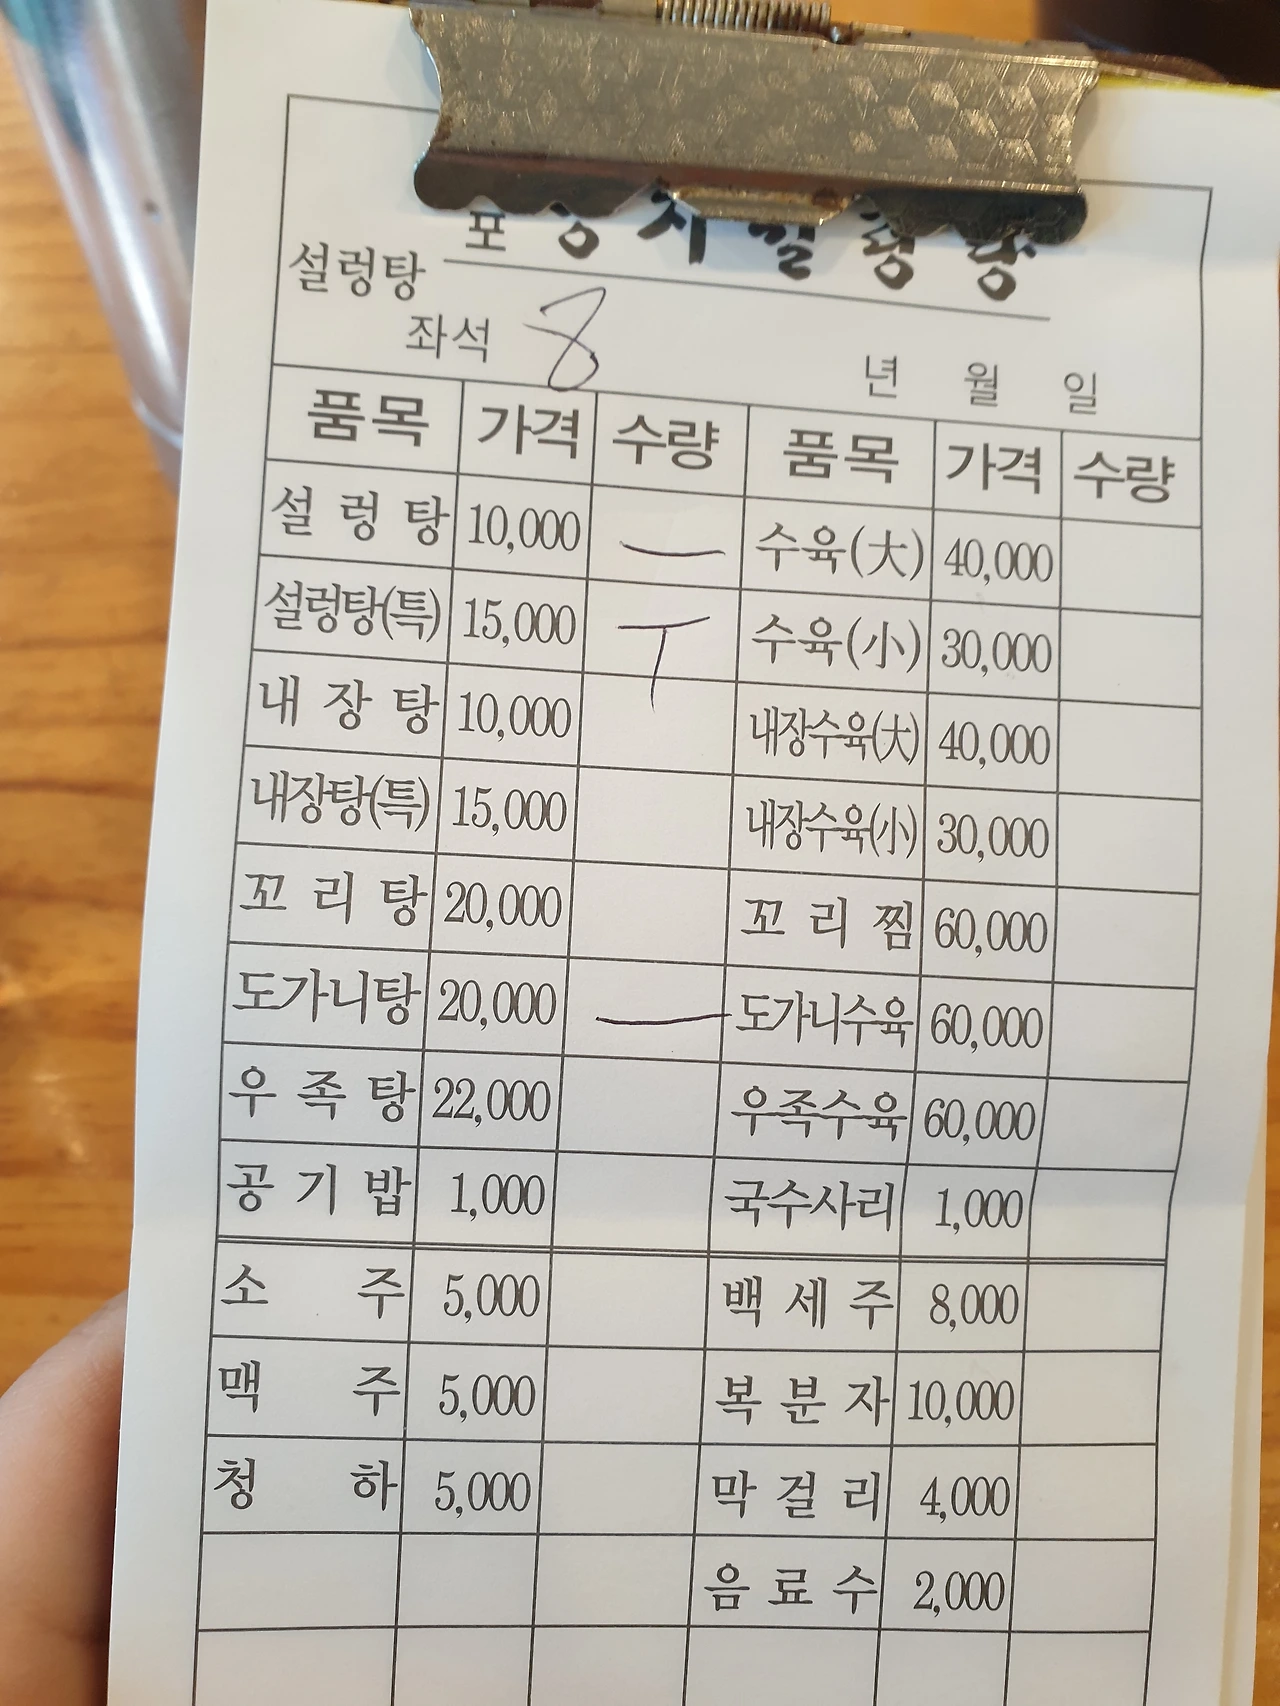 설렁탕
좌석 8 년 월 일
품목 가격 수량 품목 가격 수량
설렁탕 10,000 一 수육(大) 40,000
설렁탕(특) 15,000 T 수육(小) 30,000
내장탕 10,000 내장수육(大) 40,000
내장탕(특) 15,000 내장수육(小) 30,000
꼬리탕 20,000 꼬리찜 60,000
도가니탕 20,000 一 도가니수육 60,000
우족탕 22,000 우족수육 60,000
공기밥 1,000 국수사리 1,000
소주 5,000 백세주 8,000
맥주 5,000 복분자 10,000
청하 5,000 막걸리 4,000
음료수 2,000